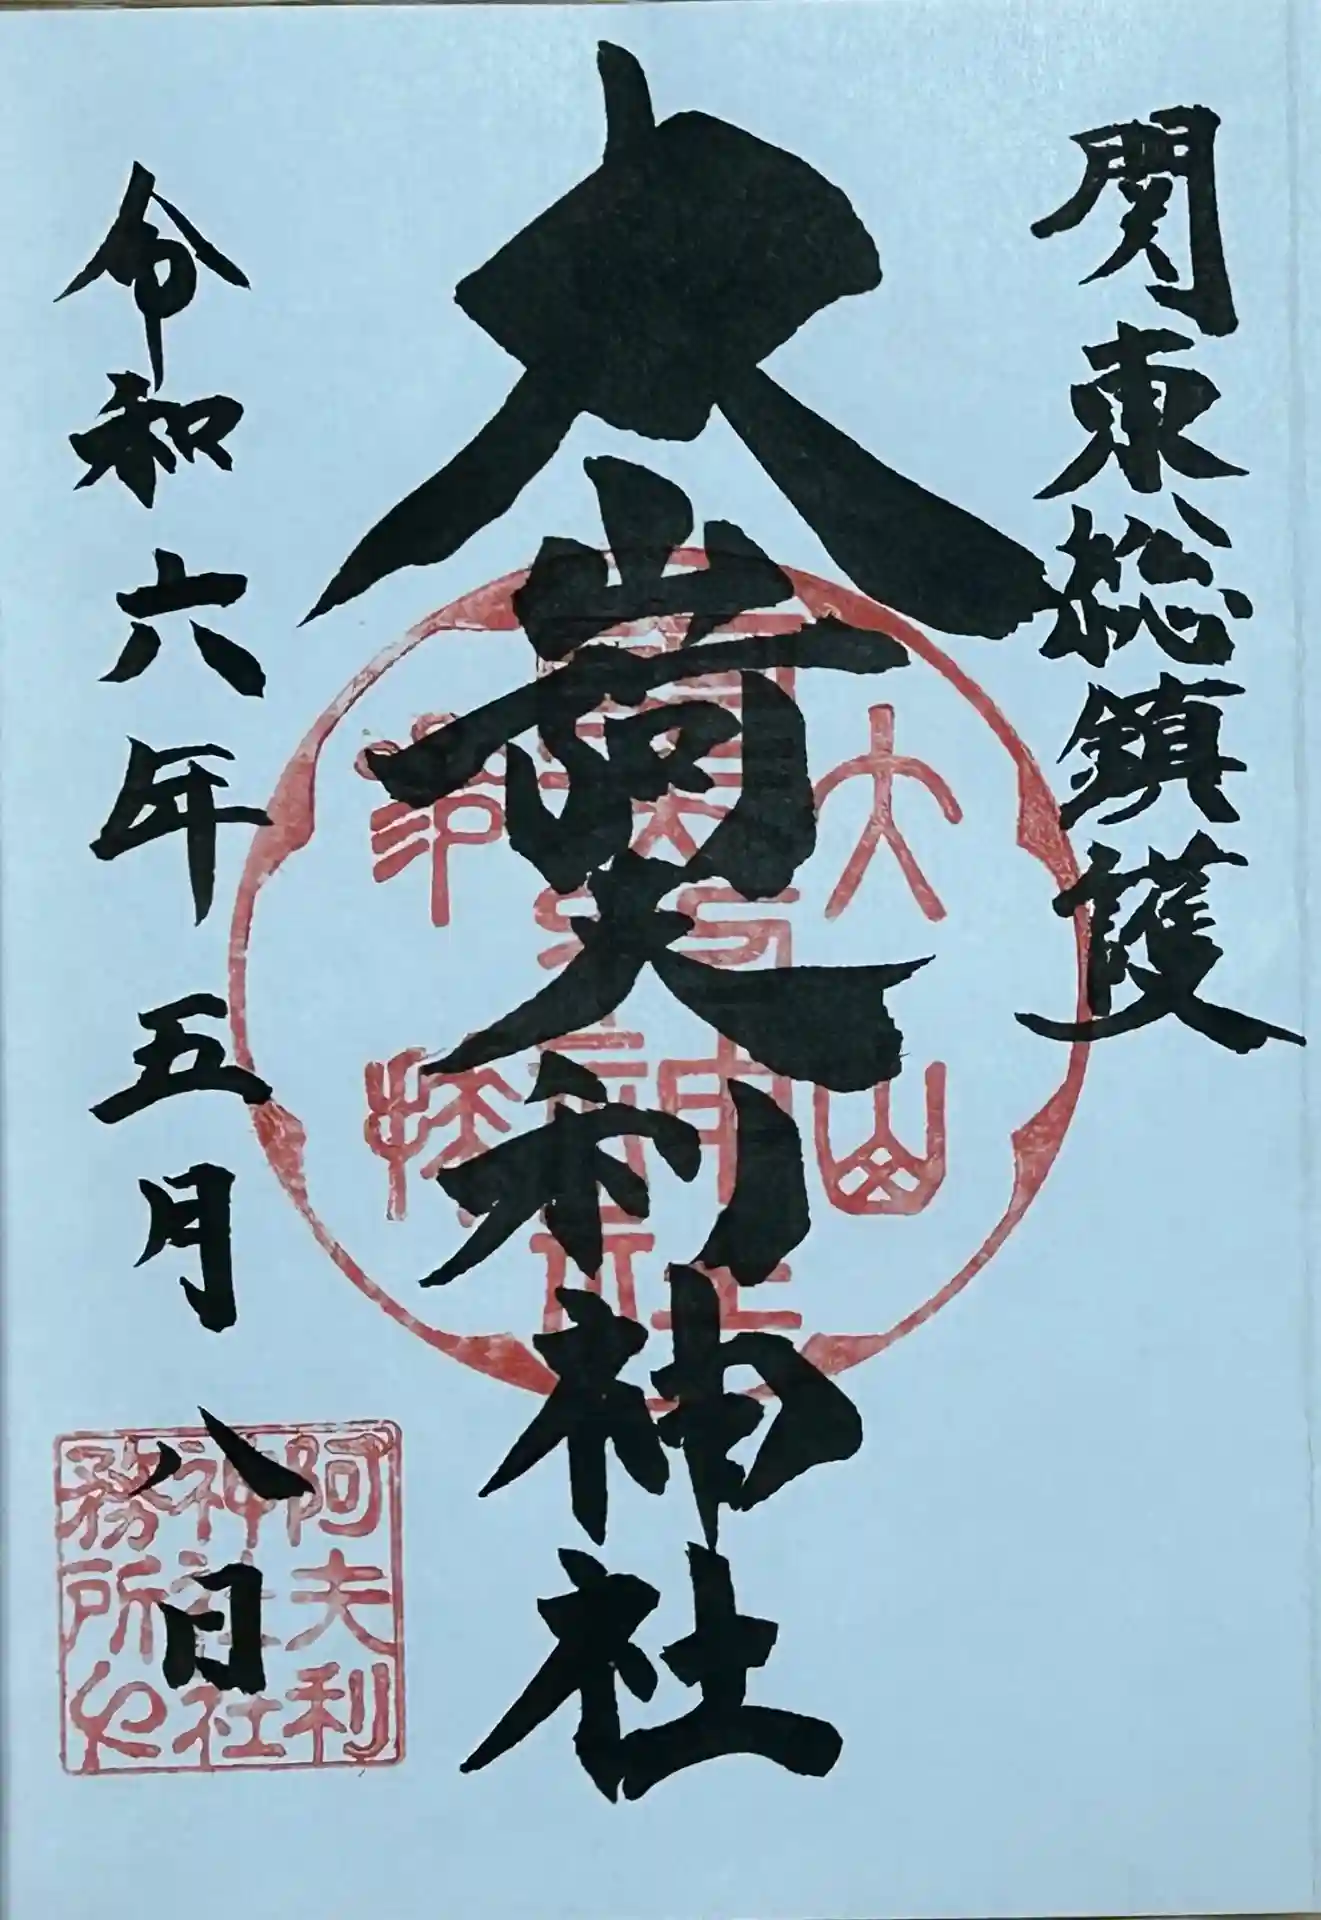 関東総鎮護
大山阿夫利神社
令和六年五月八日
大山
阿夫利神社
阿夫利
神社社
務所也